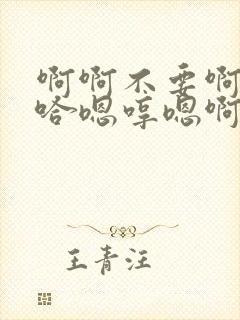 啊啊不要啊
哈嗯哼嗯啊
王青汪